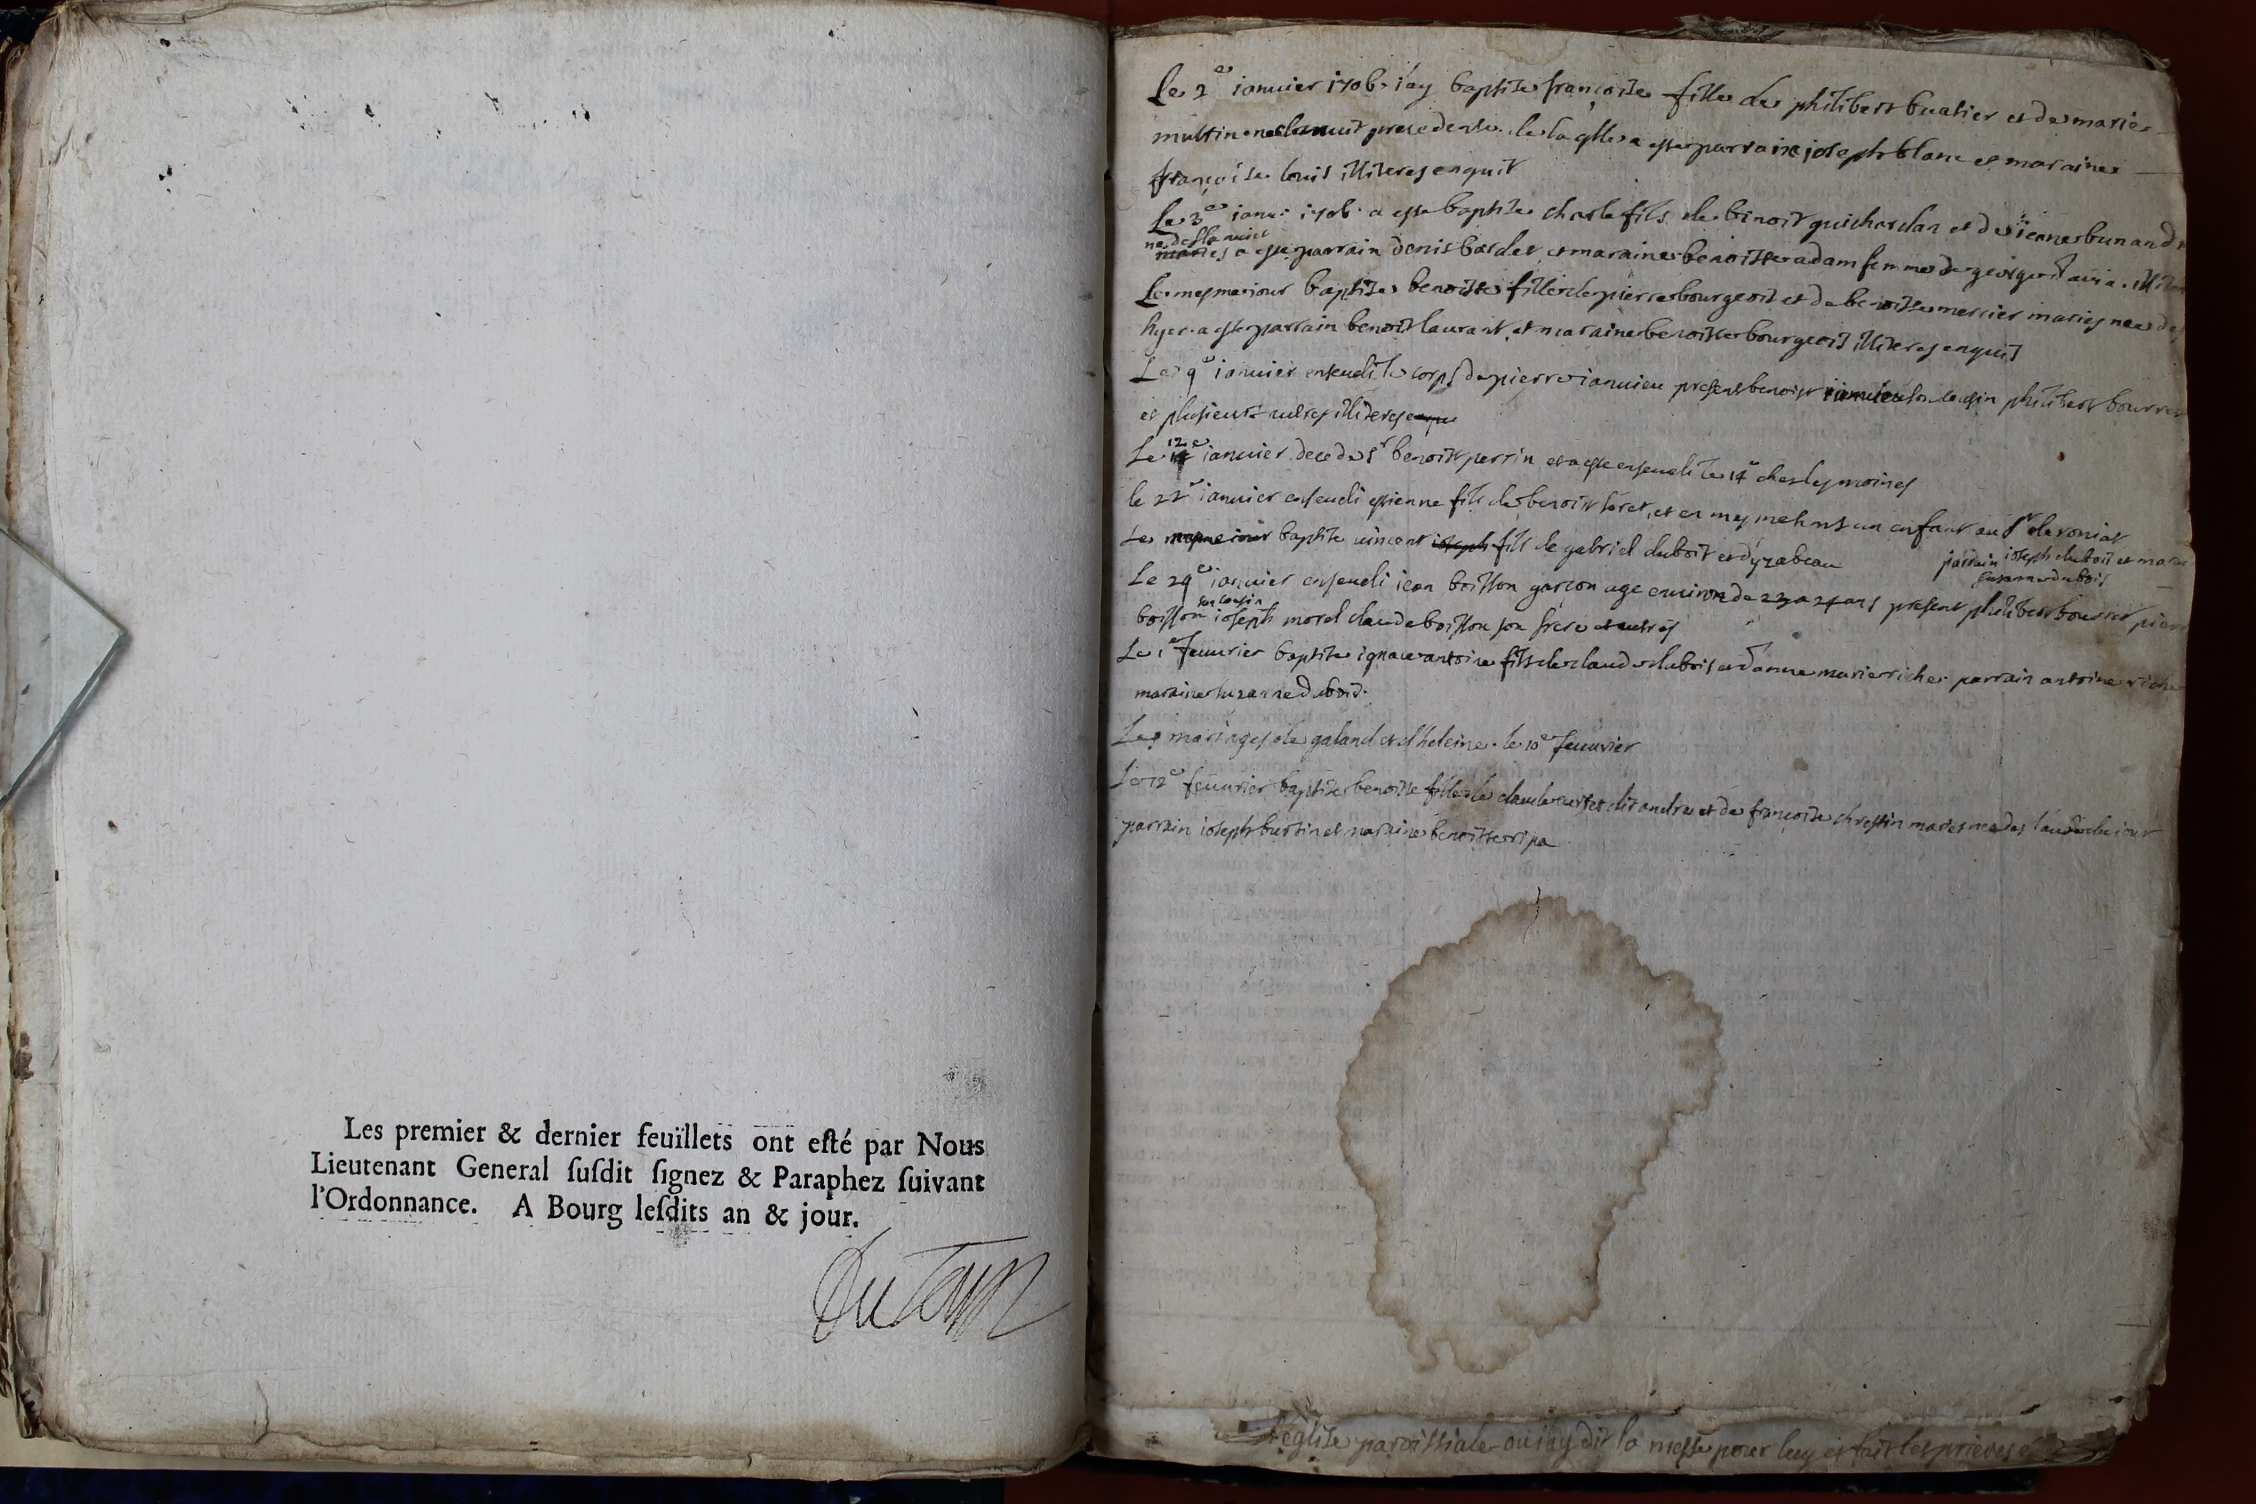 Les premier & dernier feuillets ont eſté par Nous
Lieutenant General ſuſdit ſignez & Paraphez ſuivant
l'Ordonnance. A Bourg leſdits an & jour.
Le 2e ianvier 1706 i'ay baptise françoise fille de philibert buatier et de marie
multin nee la nuit precedente de la qlle a este parrain joseph blanc et maraine
françoise louis illiteres enquit
Le 3e ianv. 1706 a este baptise charle fils de benoit guichardan et de ieanne bunand
ne de la nuict
maries a este parrain denis bardet et maraine benoitte adam femme de george
Le mesme iour baptise benoitte fille de pierre bourgeois et de benoitte mercier maries nee de
hyer a este parrain benoit laurant et maraine benoitte bourgeois illiteres enquis
Le 9e ianvier enseveli le corps de pierre ianvieu present benoist cousin philibert bourret
et plusieurs autres illiteres
Le 12e ianvier decede sr benoist perrin et a este enseveli le 14e ches les moines
le 22e ianvier enseveli estienne fils de benoist et en mesme temps un enfant au sr
Le mesme iour baptise vincent ioseph fils de gabriel dubois et d'yzabeau
parrain ioseph dubois et mara
suzanne dubois
Le 29e ianvier enseveli iean boisson garson age environ de 23 a 24 ans present philibert bourret pierre
son cousin
boisson ioseph morel claude boisson son frere et autres
Le 1e feuvrier baptise ignace antoine fils de claude dubois et d'anne marie riche parrain antoine riche
maraine suzanne dubois.
Les mariages de galand et d'heleine le 10e feuvrier
Le 12e feuvrier baptise benoitte fille de claude dit andre et de françoise chrestin maries nee des
parrain ioseph burtin et maraine benoitte ripa
l'eglise paroissiale ou i'ay dit la messe pour luy et fait les prieres